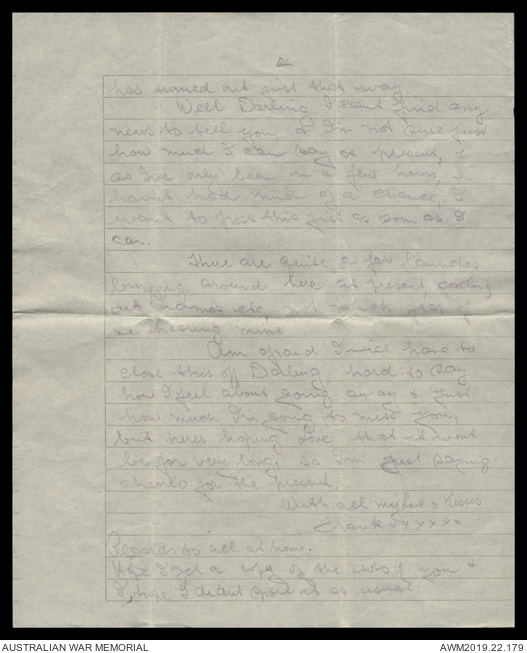 has turned out just that way
Well Darling I cant find any
news to tell you, & I'm not sure just
how much I can say at present, &
as I've only been in a few hours, I
havn't had much of a chance, I
want to post this just as soon as I
can.
There are quite a few launches
buzzing around here at present calling
out names etc, not much fear of
me hearing mine
Am afraid I will have to
close this off Darling, hard to say
how I feel about going away & just
how much I'm going to miss you,
but heres hoping Love that it wont
be for very long, so I'm just saying
cheerio for the present
With all my love & Kisses
Frank xxxxxx
Regards to all at home.
Hope I get a copy of the photo of you &
I, hope I didnt spoil it as usual
AUSTRALIAN WAR MEMORIAL
AWM2019.22.179